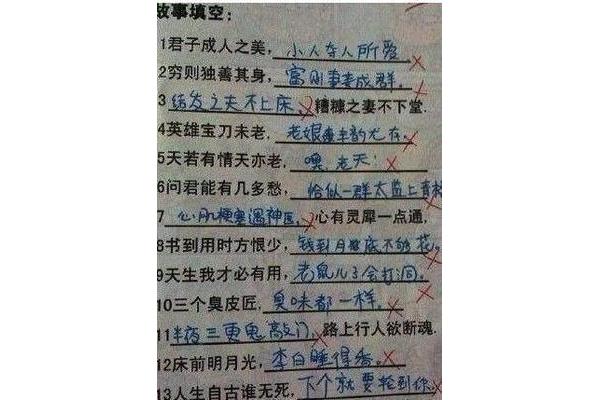 故事填空：
1君子成人之美，小人夺人所爱
2穷则独善其身，富则妻妾成群。
3结发之夫不上床，糟糠之妻不下堂.
4英雄宝刀未老，老娘风韵尤存。
5天若有情天亦老，噢，老天！
6问君能有几多愁，恰似一群太监上青楼
7心肌梗塞遇神医，心有灵犀一点通.
8书到用时方恨少，钱到月底不够花。
9天生我才必有用，老鼠儿子会打洞。
10三个臭皮匠，臭味都一样。
11半夜三更鬼敲门，路上行人欲断魂.
12床前明月光，李白睡得香。
13人生自古谁无死，下个就要轮到你